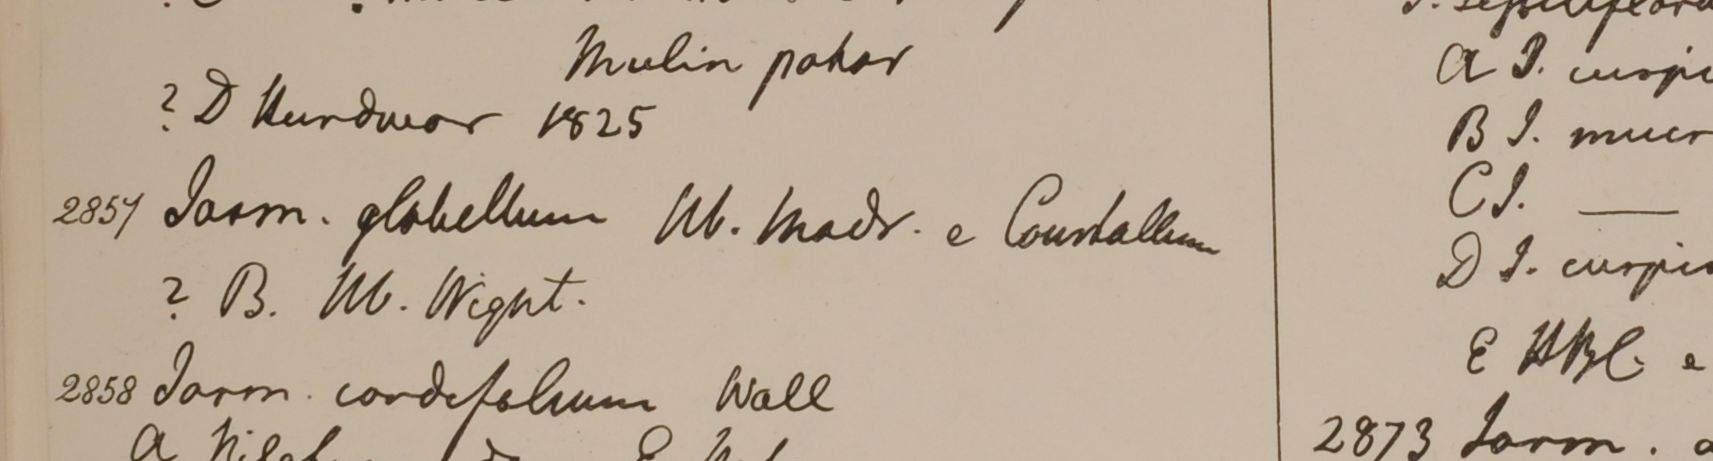 Mulin pahar
? D Hurdwar 1825
2857 Jasm. glabellum Hb. Madr. e Courtallum
? B. Hb. Wight.
2858 Jasm. cordifolium Wall
J. sessiliflora
A J. cuspi
B J. mucr
C J. —
D J. cuspi
E HBC. e
2873 Jasm.